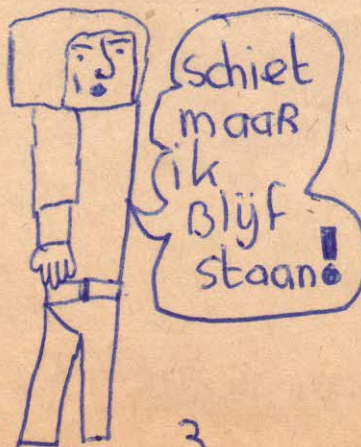 schiet
maaR
ik
Blijf
staan!
3